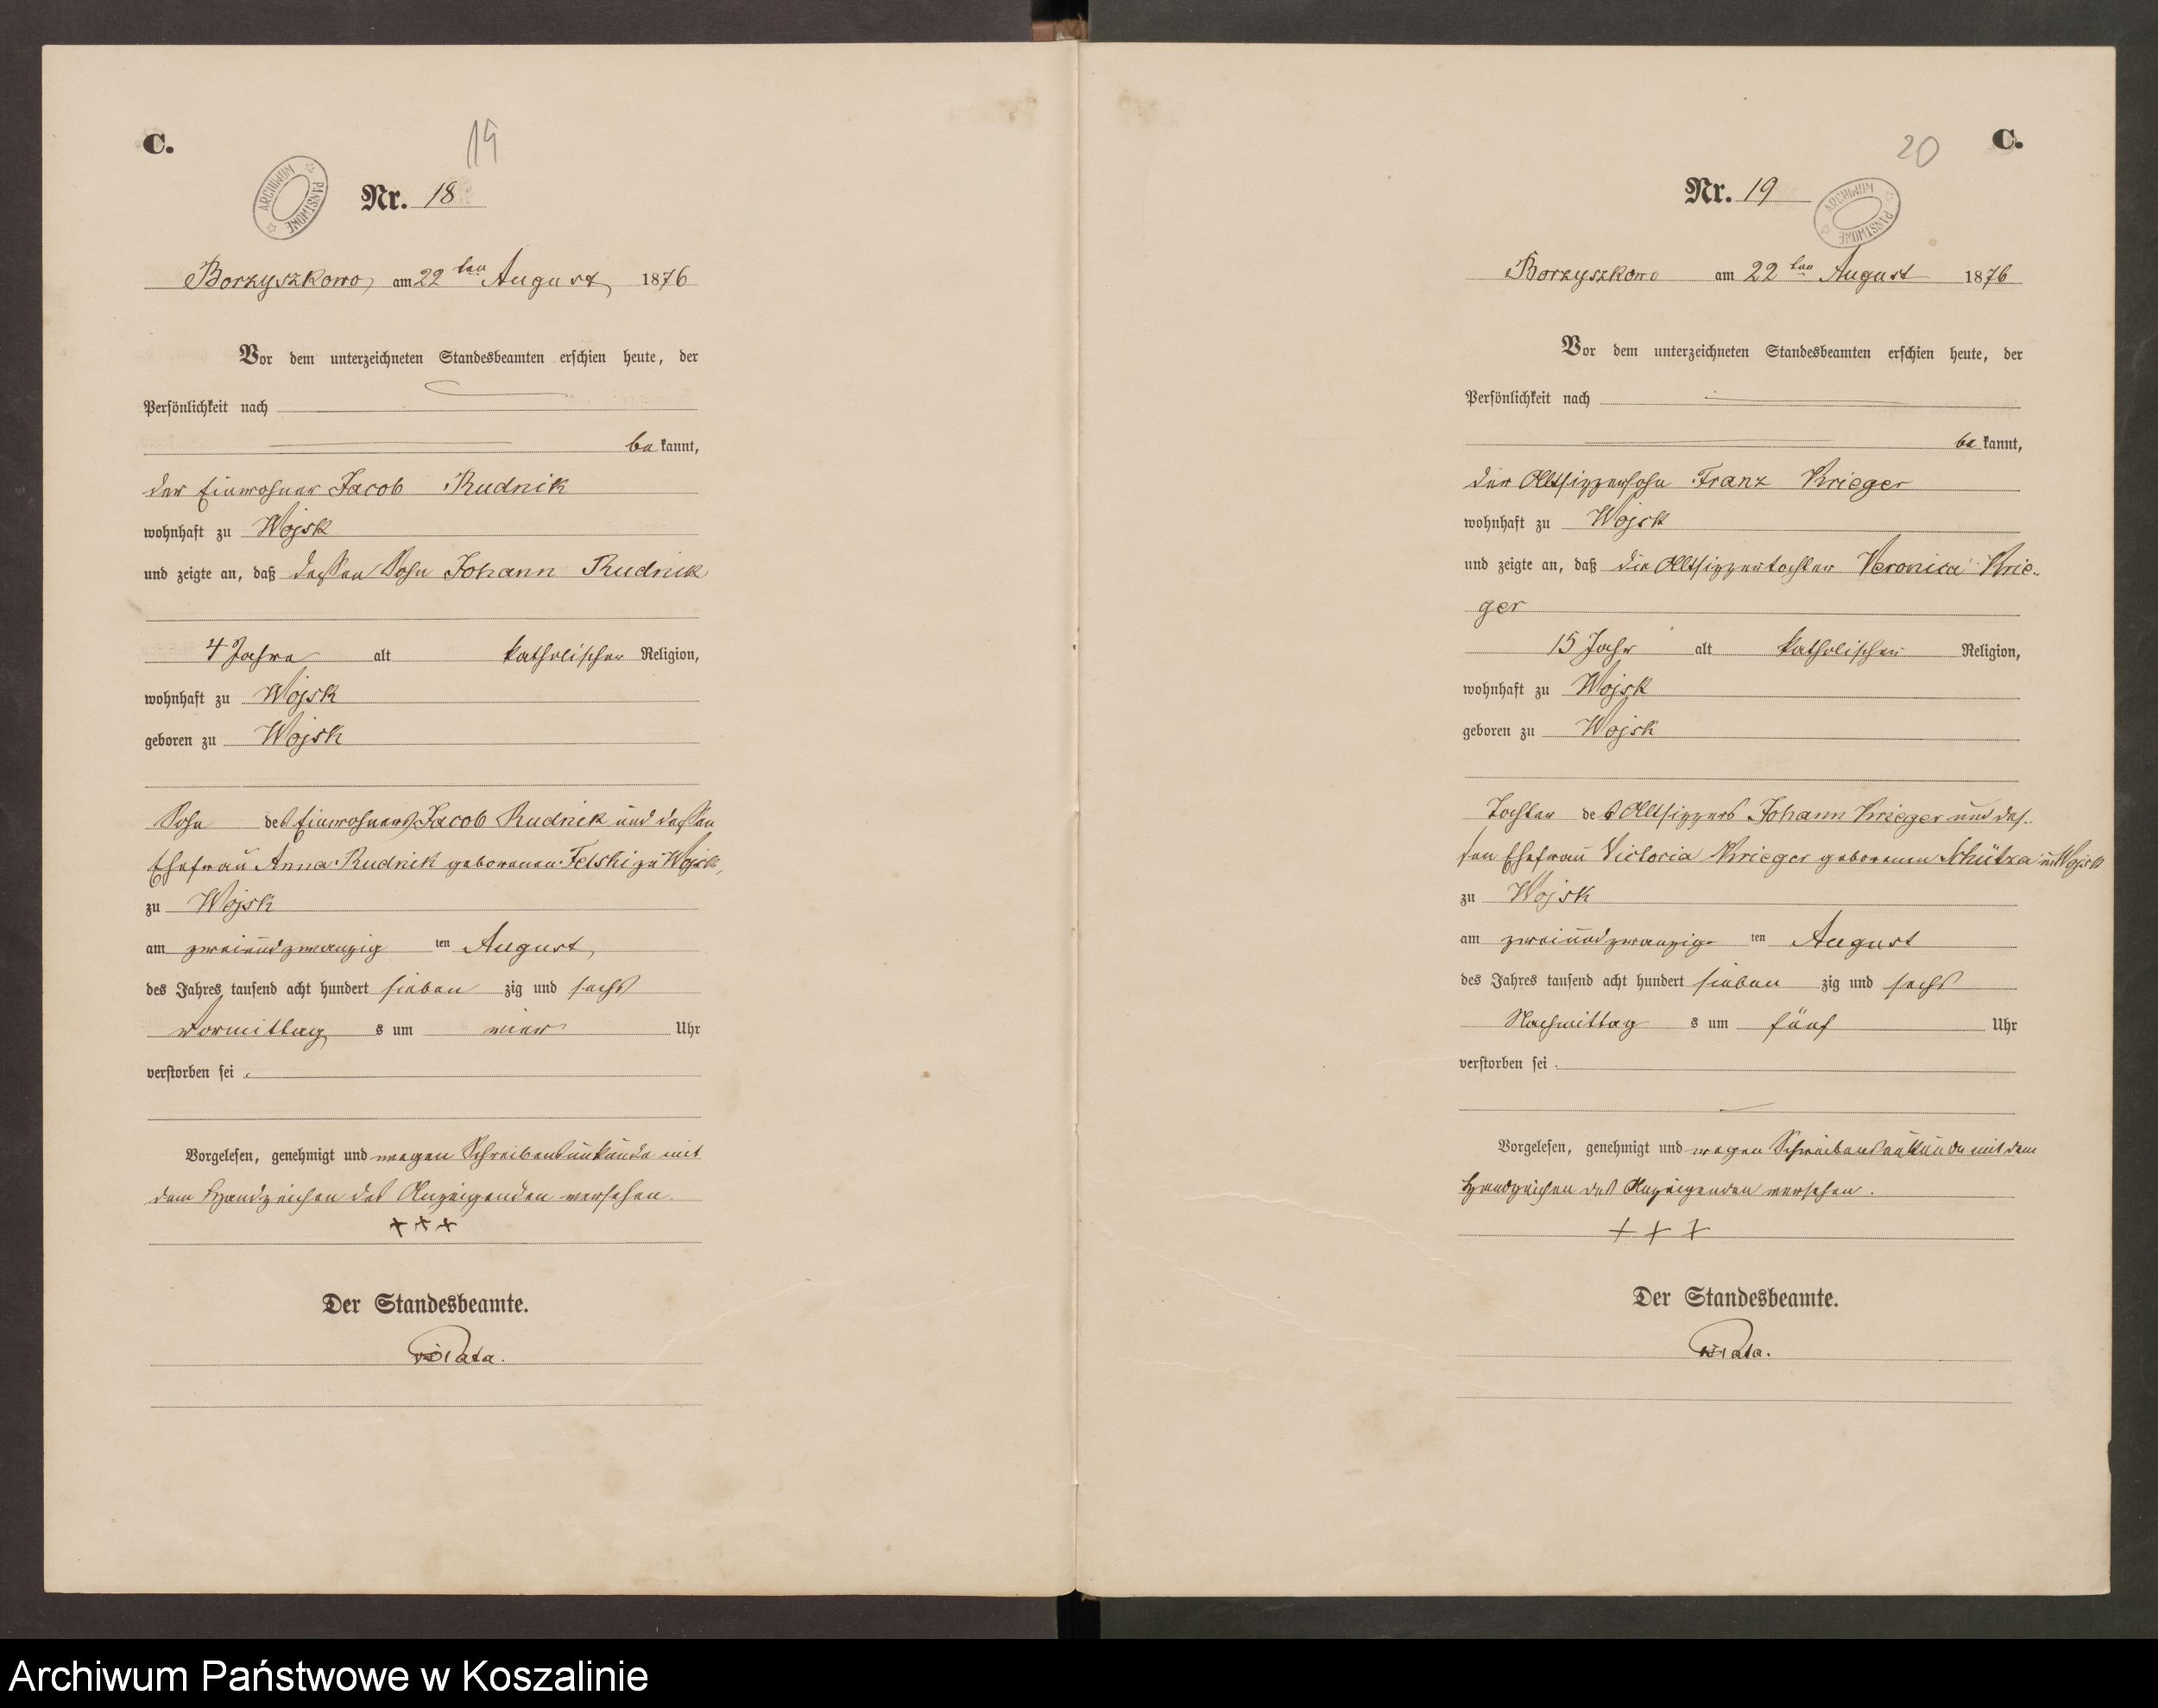 C.
19
ARCHIWUM PAŃSTWOWE
Nr. 18
Borzyszkowo, am 22ten August 1876
Vor dem unterzeichneten Standesbeamten erschien heute, der
Persönlichkeit nach
be kannt,
der Einwohner Jacob Rudnik
wohnhaft zu Wojsk
und zeigte an, daß dessen Sohn Johann Rudnik
4 Jahre alt katholischer Religion,
wohnhaft zu Wojsk
geboren zu Wojsk
Sohn des Einwohners Jacob Rudnik und dessen
Ehefrau Anna Rudnik geborenen Felski zu Wojsk,
zu Wojsk
am zweiundzwanzig ten August
des Jahres tausend acht hundert sieben zig und sechs
Vormittag s um vier Uhr
verstorben sei.
Vorgelesen, genehmigt und wegen Schreibensunkunde mit
dem Handzeichen des Anzeigenden versehen.
+++
Der Standesbeamte.
Pata.
C.
20
Nr. 19
ARCHIWUM PAŃSTWOWE
Borzyszkowo am 22ten August 1876
Vor dem unterzeichneten Standesbeamten erschien heute, der
Persönlichkeit nach
be kannt,
der Altsitzersohn Franz Krieger
wohnhaft zu Wojsk
und zeigte an, daß die Altsitzertochter Veronica Krie-
ger
15 Jahr alt katholischer Religion,
wohnhaft zu Wojsk
geboren zu Wojsk
Tochter des Altsitzers Johann Krieger und des-
sen Ehefrau Victoria Krieger geborenen Schütza zu Wojsk
zu Wojsk
am zweiundzwanzig ten August
des Jahres tausend acht hundert sieben zig und sechs
Nachmittag s um fünf Uhr
verstorben sei.
Vorgelesen, genehmigt und wegen Schreibensunkunde mit dem
Handzeichen des Anzeigenden versehen.
+++
Der Standesbeamte.
Pata.
Archiwum Państwowe w Koszalinie